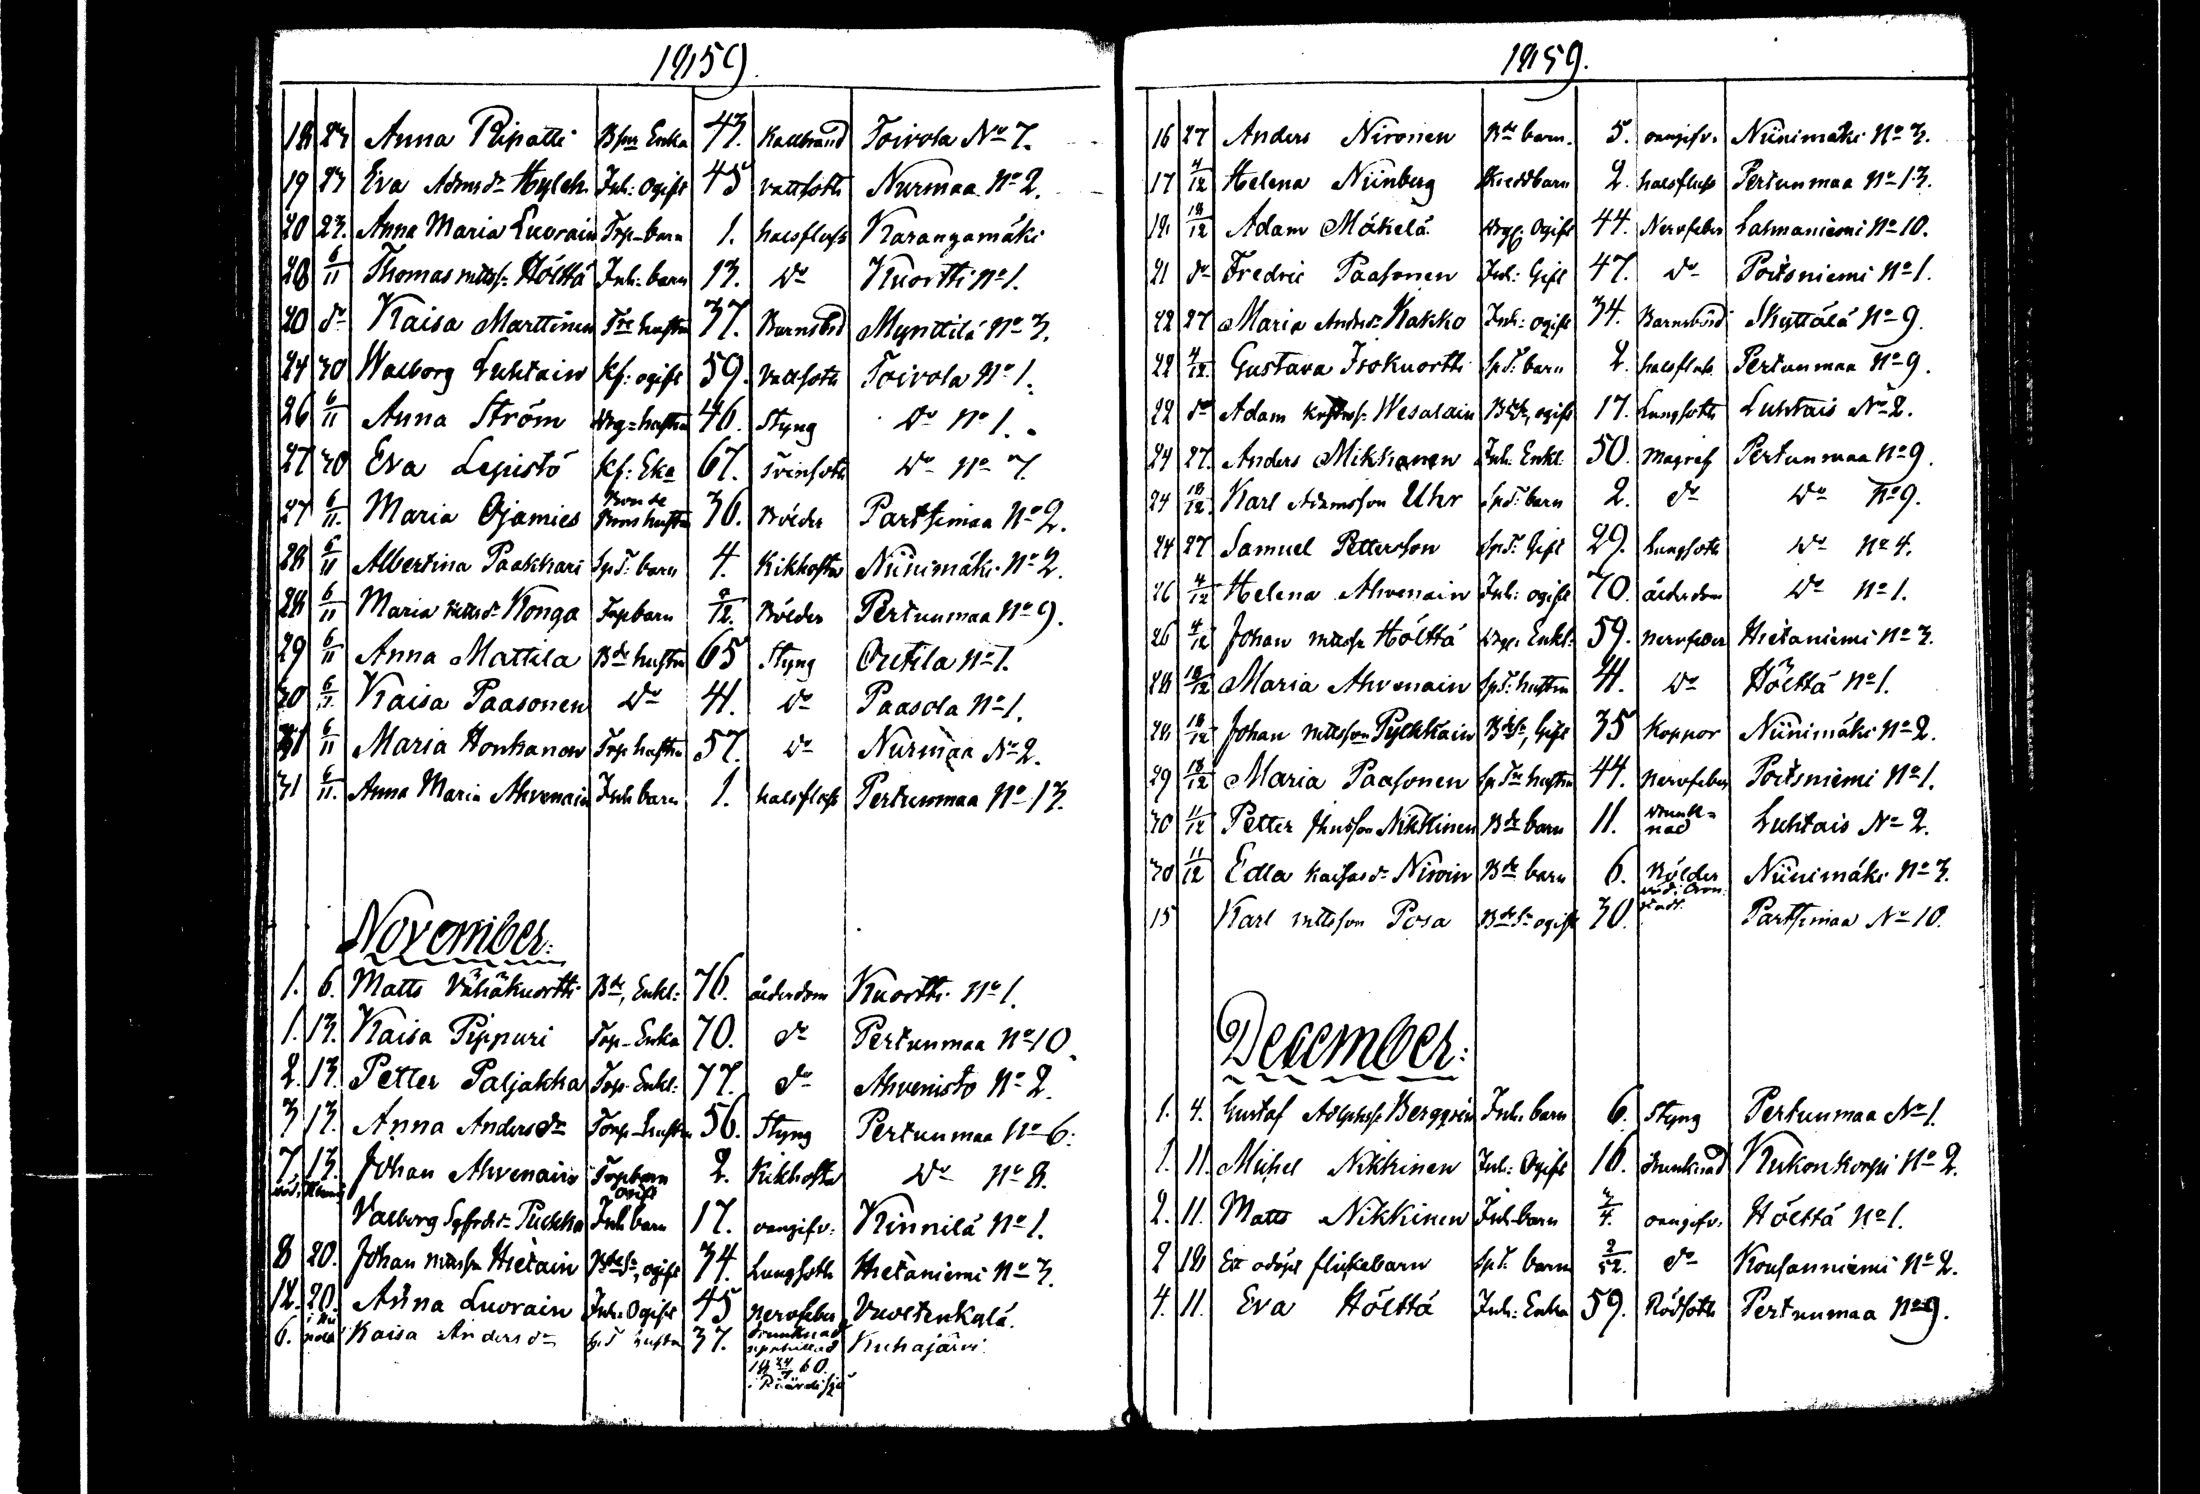 1859.
18 23 Anna Ripatti Bspr Enka 43. Kallbrand Toivola No 7.
19 23 Eva Adamsdr Hylch. Inh: Ogift 45 vattsoth Nurmaa No 2.
20 23. Anna Maria Luorain Trp-barn 1. halsfluss Karangamäki
20 6/11 Thomas mattss. Höltta Inh: barn 13. do Kuortti No 1.
20 do Kaisa Marttinen Tre hustru 37. Barnsbörd Mynttilä No 3.
24 30 Walborg Luhtain Kf: ogift 59. Vattsoth Toivola No 1.
26 6/11 Anna Ström Drg=hustru 46. Styng do No 1.
27 30 Eva Lepistö Kf: Eka 67. Tvinsoth do No 7.
27 6/11. Maria Ojamies Bonde hustru 36. Bölder Parttimaa No 2.
28 6/11 Albertina Paakkari Sp.T. barn 4. Kikhosta Niinimäki No 2.
28 6/11 Maria Mattsdr Konga Trp barn 9/12. Bölder Pertunmaa No 9.
29 6/11 Anna Mattila Bde hustru 65 Styng Outila No 1.
30 6/11. Kaisa Paasonen do 41. do Paasola No 1.
31 6/11 Maria Honkanen Trp hustru 57. do Nurmaa No 2.
31 6/11. Anna Maria Ahvenain Inh barn 1. halsfluss Pertunmaa No 13.
November:
1. 6. Matts Vähäkuortti Bde, Enkl: 76. ålderdom Kuortti No 1.
1. 13. Kaisa Pippuri Trp-Enka 70. do Pertunmaa No 10.
2. 13. Petter Paljakka Trp-Enkl: 77. do Ahvenisto No 2.
3 13. Anna Andersdr Torp-hustru 56. Styng Pertunmaa No 6.
7. 13. Johan Ahvenain Trp barn 2. Kikhosta do No 8.
Valborg Sgfrdsdr Pukkha Inh barn ogift 17. oangifv: Kinnilä No 1.
8 20. Johan mattssn Hietain Bde Sn, ogift 34. Lungsoth Hietaniemi No 3.
12. 20. Anna Luorain Inh: Ogift 45 nervfeber Vuoltenkalá.
6. Kaisa Andersdr Sp.T hustru 37. drunknad Kuhajärvi
upphittad
18 24/7 60.
1859.
16 27 Anders Nironen Bde barn. 5. oangifv: Niinimäki No 3.
17 4/12 Helena Niinberg Skreddbarn 2. halsfluss Pertunmaa No 13.
18. 18/12 Adam Mäkelä Drg: Ogift 44. Nervfeber Lahnaniemi No 10.
21 do Fredric Paasonen Inh: Gift 47. do Poitsniemi No 1.
22 27 Maria Andrsdr Kakko Inh: ogift 34. Barnsbörd Skyttälä No 9.
22 4/12. Gustava Isokuortti Sp.T: barn 2. halsfluss Pertunmaa No 9.
22 do Adam Wesalain Bde Sn, ogift 17. Lungsoth Luhtais No 2.
24 27. Anders Mikkanen Inh. Enkl: 50. magref Pertunmaa No 9.
24 18/12. Karl Adamsson Uhr Sp.T: barn 2. do do No 9.
24 27 Samuel Pettersson Sp.T: Gift 29. Lungsoth do No 4.
26 4/12 Helena Ahvenain Inh: ogift 70. ålderdom do No 1.
26 4/12 Johan mattssn Hölttä Drg: Enkl: 59. nervfeber Hietaniemi No 3.
28 18/12 Maria Ahvenain Sp.T: hustru 41. do Hölttä No 1.
28 18/12 Johan mattsson Pylkkäin Bde Sn, Gift 35 Koppor Niinimäki No 2.
29 18/12 Maria Paasonen Sp Tre hustru 44. nervfeber Poitsniemi No 1.
30 11/12 Petter Jhnsson Nikkinen Bde barn 11. drunk=nad Luhtais No 2.
30 11/12 Edla Kaisasdr Niroin Bde barn 6. Bölder Niinimäki No 3.
15 Karl mattsson Posa Bde Sn ogift 30. Parttimaa No 10.
December:
1. 4. Gustaf Adlphss. Bergqvin Inh. barn 6. Styng Pertunmaa No 1.
1. 11. Mickel Nikkinen Inh: Ogift 16. drunknad Kukonkorpi No 2.
2. 11. Matts Nikkinen Inh-barn 3/4. oangifv: Hölttä No 1.
2 18 Ett odöpt flickebarn Sp.T. barn 2/52. do Kousanniemi No 2.
4. 11. Eva Hölttä Inh: Enka 59. Rödsoth Pertunmaa No 9.